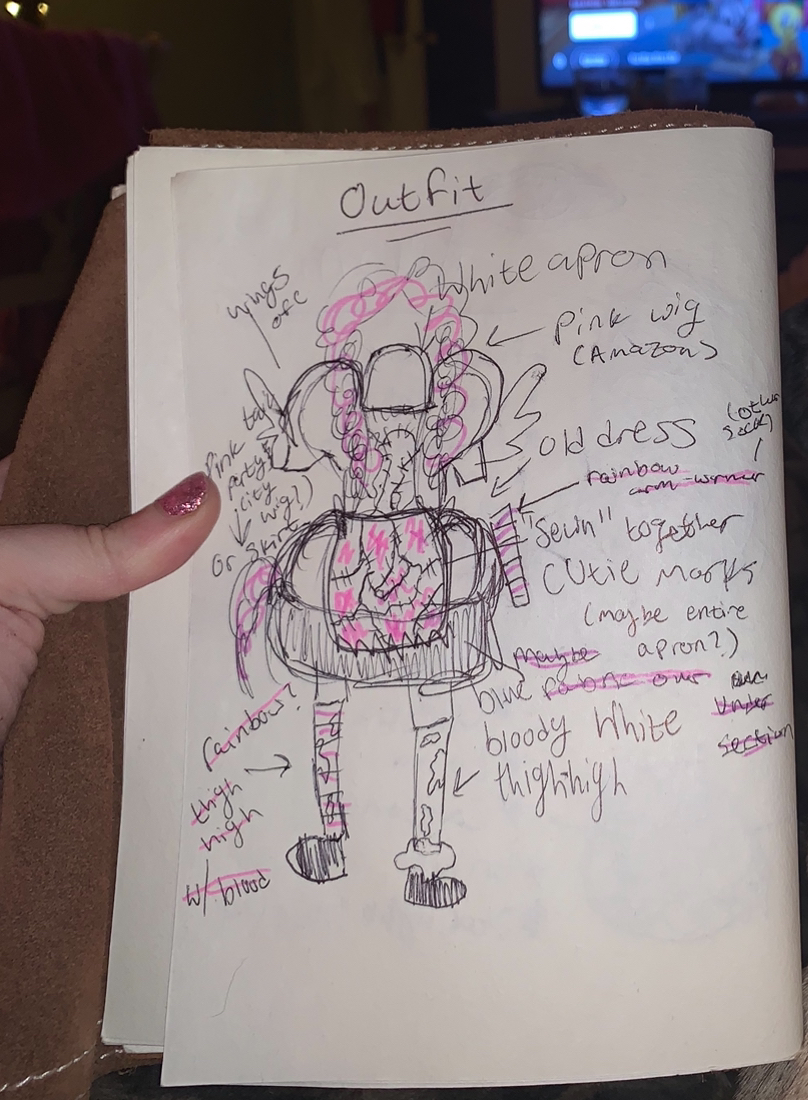 Outfit
White apron
wings
Pink wig
(Amazon)
Pink tail
party
city
wig?)
Or skirt
old dress
rainbow
arm-warmer
"Sewn" together
Cutie Marks
(maybe entire
apron?)
maybe
blue fabric over
Under
section
bloody White
thighhigh
rainbow?
thigh
high
w/ blood